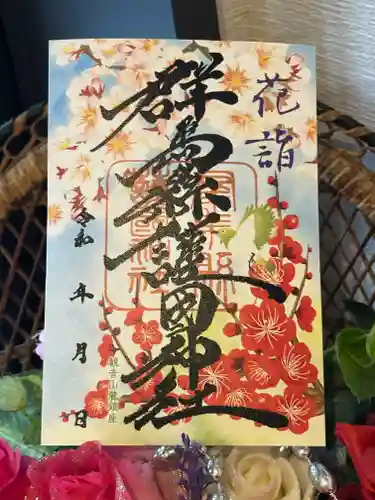 花詣
群馬縣護国神社
令和 年 月 日